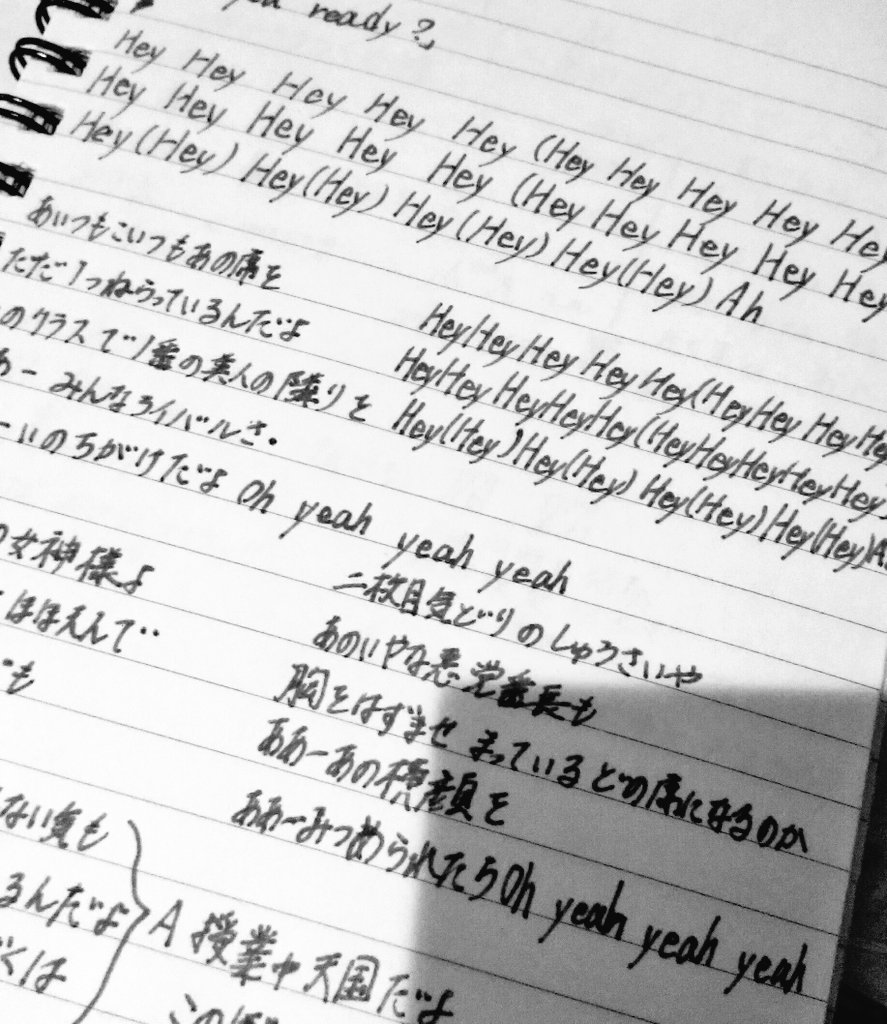 ready?」
Hey Hey Hey Hey Hey (Hey Hey Hey Hey Hey
Hey Hey Hey Hey Hey (Hey Hey Hey Hey Hey
Hey (Hey) Hey (Hey) Hey (Hey) Hey (Hey) Ah
あいつもこいつもあの席を
ただ1つねらっているんだよ
のクラスで1番の美人の隣りを
あーみんなライバルさ.
ーいのちがけだよ Oh yeah yeah yeah
HeyHeyHey Hey Hey(HeyHey HeyHey
HeyHey HeyHeyHey(HeyHeyHeyHeyHey
Hey(Hey)Hey(Hey) Hey(Hey)Hey(Hey)A
女神様よ
ほほえんで‥
も
二枚目気どりのしゅうさいや
あのいやな悪党番長も
胸をはずませ まっている どの席になるのか
ああーあの横顔を
ああーみつめられたら Oh yeah yeah yeah
ない気も
るんだよ
くは
A 授業中天国だよ
この